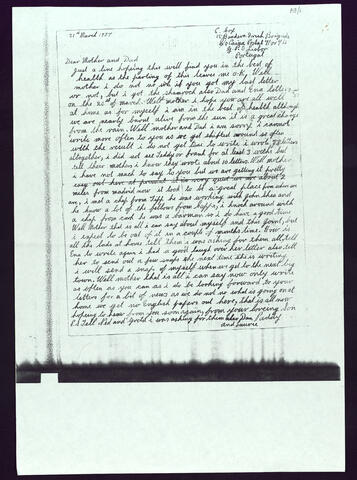 21st March 1937
C. Cox
15 Brigade
G.P.O. Lisbon
Portugal
Dear Mother and Dad
Just a line hoping this will find you in the best of
health as the parting of this leaves me o.k. Well
mother i do not no if you got my last letter
or not, but i got the shaved also Dad and Ena letters
on the 20th of march. Well mother i hope you are all well
at home as for myself i am in the best of health although
we are nearly burnt alive from the sun it is a great change
from the rain. Well mother and Dad i am sorry i cannot
write more often to you as we get shifted around so often
with the result i do not get time to write i wrote letters
altogether, i did not see Teddy or Frank for at least 3 weeks but
tell their mothers i know they wrote about 10 letters. Well mother
i have not much to say to you but we are getting it pretty
easy out here at present it is very quiet we are about 2
miles from madrid now it look to be a great place from where we
are, i met a chap from Tipp he was working with john shea and
he know a lot of the fellows from kaffee, i hound around with
a chap from cork he was a barman so i do have a good time
Well Mother that is all i can say about myself and this front, but
i expect to be out of it in a couple of months time. How is
all the lads at home tell them i was asking for them all, tell
Ena to write again i had a good laugh over her letter also tell
her to send out a few snaps the next time she is writing
i will send a snap of myself when we get to the next big
town. Well mother that is all i can say now only write
as often as you can as i do be looking forward to your
letters for a bit of news as we do not no what is going on at
home we get no English papers out here, that is all now
hoping to hear from you soon again from your loveing son
Tell Sid and Gerald i was asking for them also Dan
and Laurie